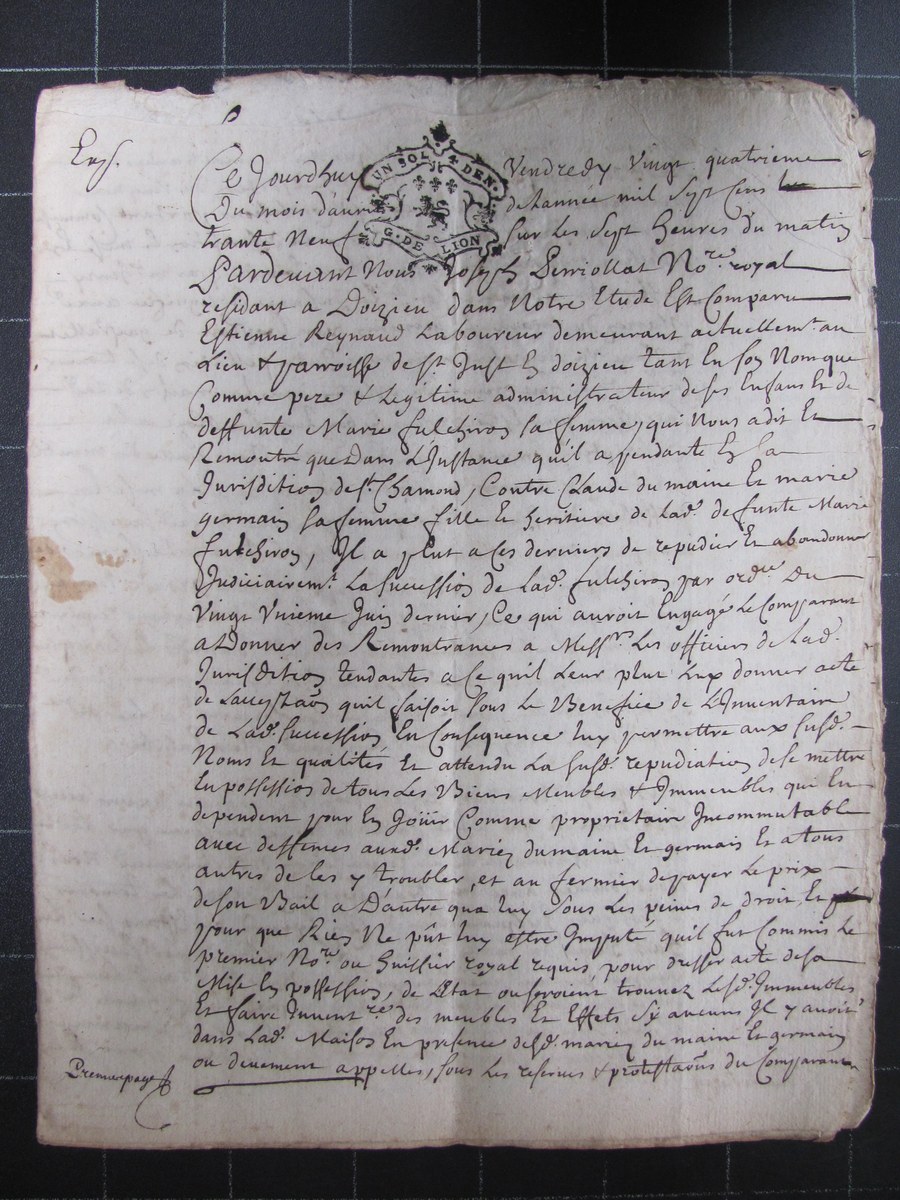 Exp.
UN SOL 4 DEN.
G. DE LION
Ce Jourdhuy Vendredy Vingt quatrieme
Du mois davril delannee mil Sept Cens
trante Neuf sur les Sept heures du matin
Pardevant Nous Joseph Perriollat No.re royal
residant a Doizieu dans Notre Etude Est Comparu
Estienne Reynaud Laboureur demeurant actuellem.t au
Lieu & parroisse de st. Just En doizieu tant En son Nom que
Comme pere & Legitime administrateur de ses Enfans Et de
deffunte Marie fulchiron sa femme, qui Nous a dit Et
Remontré que Dans L'Instance qu'il a pendante En La
Jurisdition de st. Chamond, Contre Claude du maine Et marie
germain sa femme fille Et heritiere de Lad. defunte Marie
fulchiron, Il a plut a ces derniers de repudier Et abandonner
Judiciairem.t La succession de Lad. fulchiron par ord.ce Du
Vingt Unieme Juin dernier, Ce qui auroit Engagé Le Comparant
a Donner des Remontrances a Mess.rs Les officiers de Lad.
Jurisdition tendantes a ce quil Leur plut Luy donner acte
de quil faisoit sous Le Benefice de L'Inventaire
de Lad. succession En Consequence luy permettre aux susd.
Noms Et qualités Et attendu La susd. repudiation de se mettre
En possession de tous Les Biens Meubles & Immeubles qui En
dependent pour En Joüir Comme proprietaire Incommutable
avec deffences auxd. Mariez dumaine Et germain Et a tous
autres de les y troubler, et au fermier de payer Le prix
de son Bail a Dautre qua luy sous Les peines de droit, Et
pour que Rien Ne pût luy estre Imputé quil fut Commis Le
premier No.re ou huissier royal requis, pour dresser acte de sa
Mise En possession, de L'Etat ou seroient trouvez Lesd. Immeubles
Et faire Invent.re des meubles Et Effets sy aucuns Il y avoit
dans Lad. Maison En presence desd. mariez du maine Et germain
ou deuement appelles, sous Les reserves & protestaōns du Comparant
Premierepage